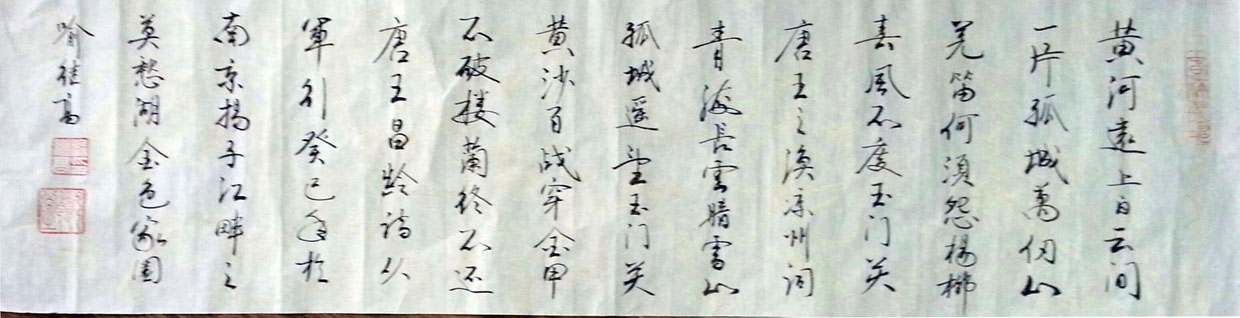 黄河遠上白云间
一片孤城萬仞山
羌笛何須怨楊柳
春风不度玉门关
唐王之渙凉州词
青海长雲暗雪山
孤城遥望玉门关
黄沙百战穿金甲
不破楼蘭终不还
唐王昌龄诗从
軍行癸巳年於
南京揚子江畔之
莫愁湖金色家園